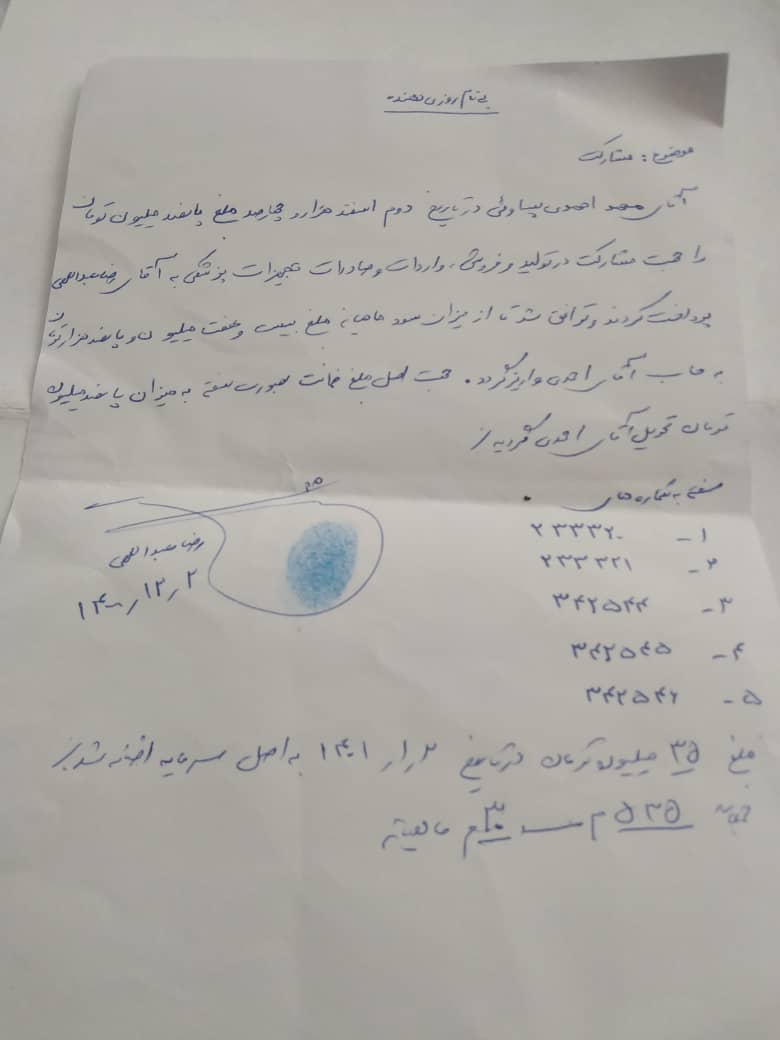 بنام روزی دهنده
موضوع : مشارکت
آقای محمد احمدی پیساوئی در تاریخ دوم اسفند هزار و چهارصد مبلغ پانصد میلیون تومان
را جهت مشارکت در تولید و فروش، واردات و صادرات تجهیزات پزشکی به آقای رضا عبداللهی
پرداخت کردند و توافق شد تا از میزان سود ماهیانه مبلغ بیست و هفت میلیون و پانصد هزار تومان
به حساب آقای احمدی واریز گردد. جهت اصل مبلغ ضمانت بصورت سفته به میزان پانصد میلیون
تومان تحویل آقای احمدی گردید.
سفته به شماره های
۱ - ۲۳۳۳۲۰
۲ - ۲۳۳۳۲۱
۳ - ۳۴۲۵۴۴
۴ - ۳۴۲۵۴۵
۵ - ۳۴۲۵۴۶
رضا عبداللهی
۱۴۰۰/۱۲/۲
مبلغ ۳۵ میلیون تومان در تاریخ ۱۴۰۱/۱/۲ به اصل سرمایه اضافه شد.
۵۳۵ م ۳۰ م ماهیانه